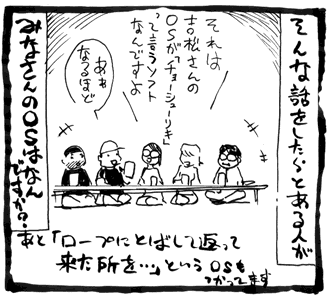 そんな話をしたらとある人が
それは
吉松さんの
OSが「チョーシューリキ」
って言うソフト
なんですよ
あぁ
なるほど
みなさんのOSはなん
ですか?
あと「ロープにとばして返って
来た所を…」という OSも
つかってます